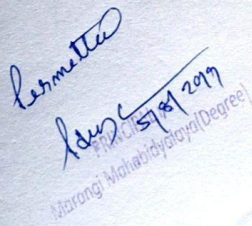 Permitted
5/8/2019
PRINCIPAL
Marangi Mahabidyalaya (Degree)